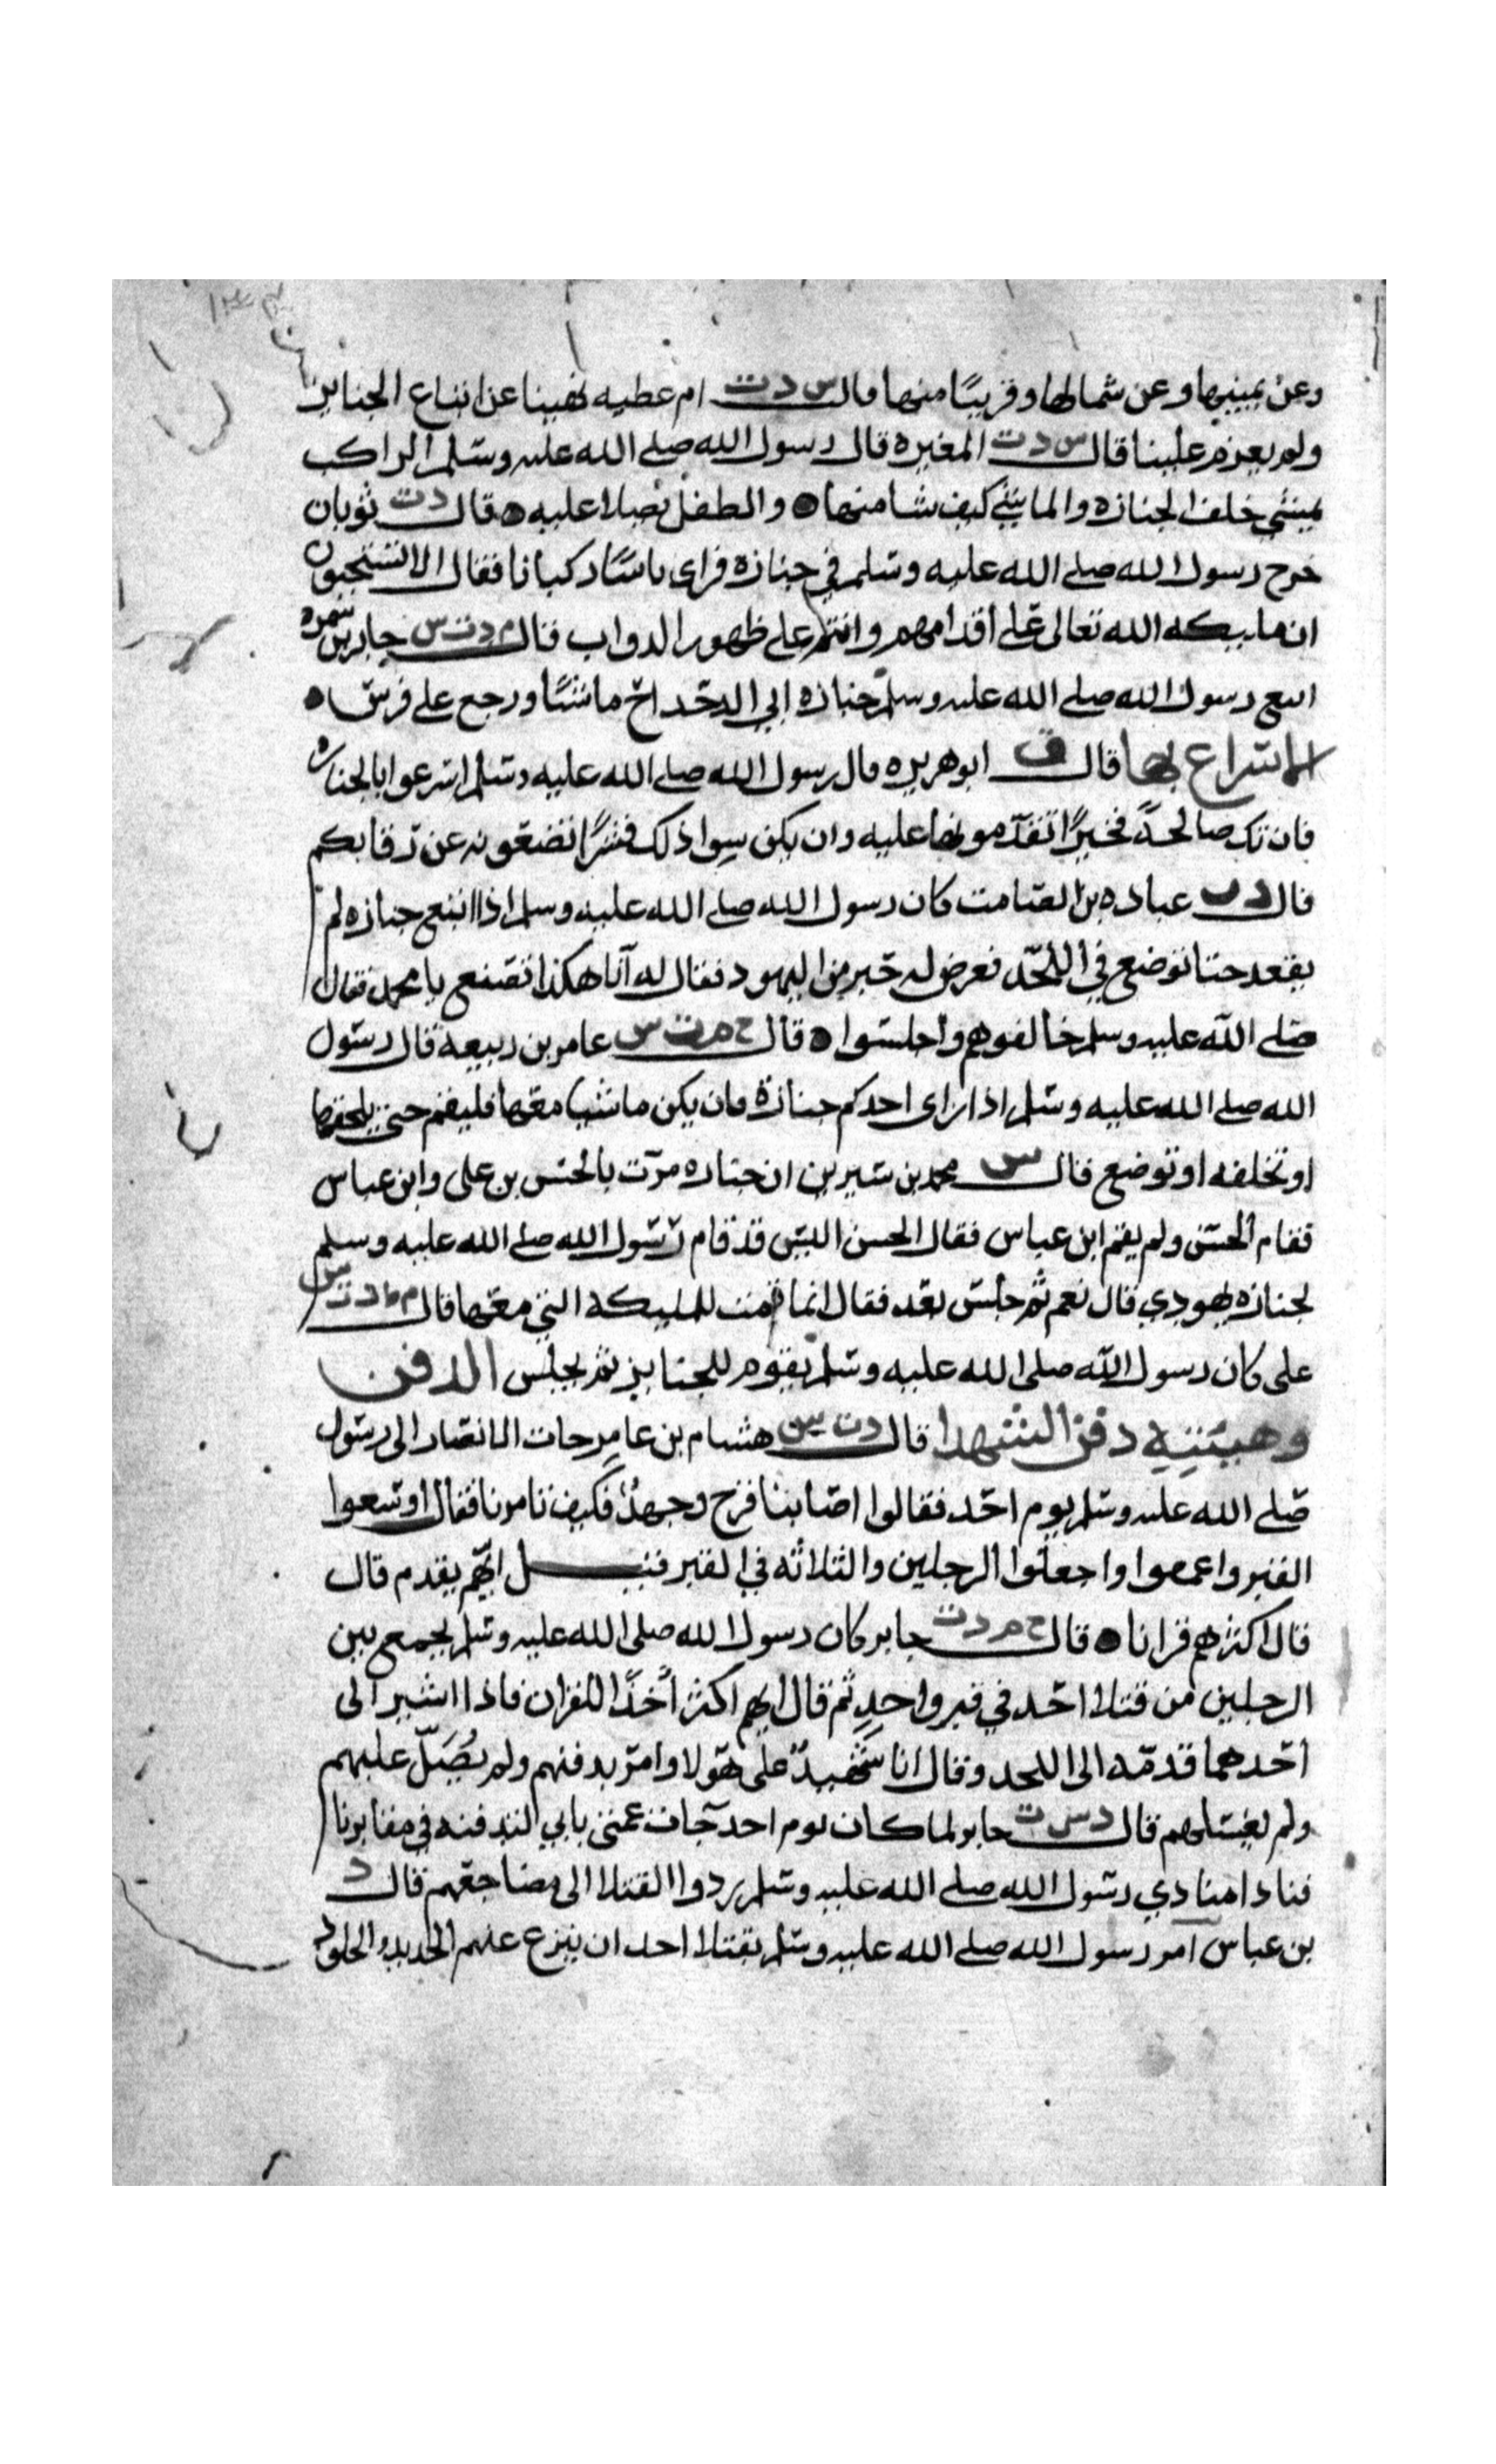 وعن يمينها وعن شمالها وقريبًا منها قال س د ت ام عطيه نهينا عن اتباع الجنايز
ولم يعزم علينا قال س د ت المغيره قال رسول الله صلى الله عليه وسلم الراكب
يمشي خلف الجنازه والماشي كيف شا منها ● والطفل يصلا عليه ● قال د ت ثوبان
خرج رسول الله صلى الله عليه وسلم في جنازة فراى ناسًا ركبانا فقال الا تستحيون
ان ملايكه الله تعالى على أقدامهم وانتم على ظهور الدواب قال م د ت س جابر بن سمره
اتبع رسول الله صلى الله عليه وسلم جنازه ابي الدحداح ماشيًا ورجع على فرس ●
الاسراع بها قال ق ابو هريره قال رسول الله صلى الله عليه وسلم اسرعوا بالجنازه
فان تك صالحةً فخيرًا تقدمونها عليه وان يكن سوا ذلك فشرًا تضعونه عن رقابكم
قال د ت عباده بن الصامت كان رسول الله صلى الله عليه وسلم اذا اتبع جنازه لم
يقعد حتا توضع في اللحد فعرض له حبر من اليهود فقال له انا هكذا نصنع يا محمد فقال
صلى الله عليه وسلم خالفوهم واجلسوا ● قال خ م ت س عامر بن ربيعة قال رسول
الله صلى الله عليه وسلم اذا راى احدكم جنازة فان يكن ماشيا معها فليقم حتى يخلفها
او تخلفه او توضع قال س محمد بن سيرين ان جنازه مرت بالحسن بن على وابن عباس
فقام الحسن ولم يقم ابن عباس فقال الحسن اليس قد قام رسول الله صلى الله عليه وسلم
لجنازه يهودي قال نعم ثم جلس بعد فقال انما قمنت للمليكه التي معها قال م ط د ت س
على كان رسول الله صلى الله عليه وسلم يقوم للجنايز ثم يجلس الدفن
وهيئته دفن الشهدا قال د ت س هشام بن عامر جات الانصار الى رسول
صلى الله عليه وسلم يوم احد فقالوا اصابنا قرح وجهدٌ فكيف تامرنا فقال اوسعوا
القبر واعمقوا واجعلوا الرجلين والثلاثه في القبر قيل ايهم يقدم قال
قال اكثرهم قرانا ● قال خ م د ت جابر كان رسول الله صلى الله عليه وسلم يجمع بين
الرجلين من قتلا احد في قبر واحدٍ ثم قال ايهم اكثر أخذًا للقران فاذا اشير الى
احدهما قدمه الى اللحد وقال انا شهيدٌ على هولا وامر بدفنهم ولم يُصَلّ عليهم
ولم يغسلهم قال د س ت جابر لما كان يوم احد جات عمتي بابي لتدفنه في مقابرنا
فنادا منادي رسول الله صلى الله عليه وسلم ردوا القتلا الى مضاجعهم قال د
بن عباس امر رسول الله صلى الله عليه وسلم بقتلا احد ان ينزع عنهم الحديد والجلود